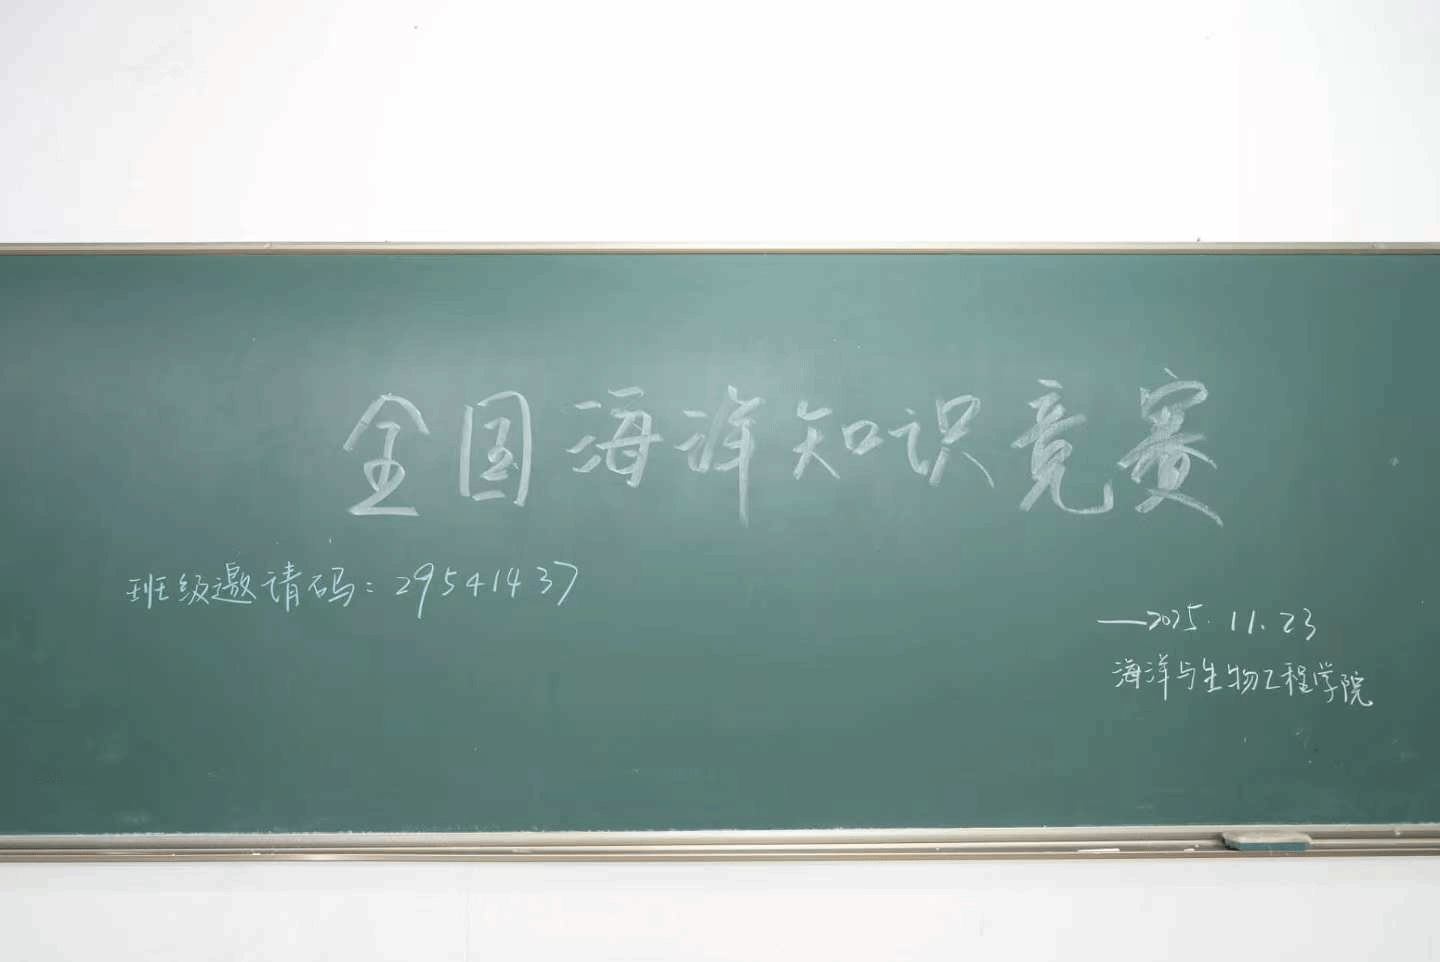 全国海洋知识竞赛
班级邀请码：29541437
——2025.11.23
海洋与生物工程学院